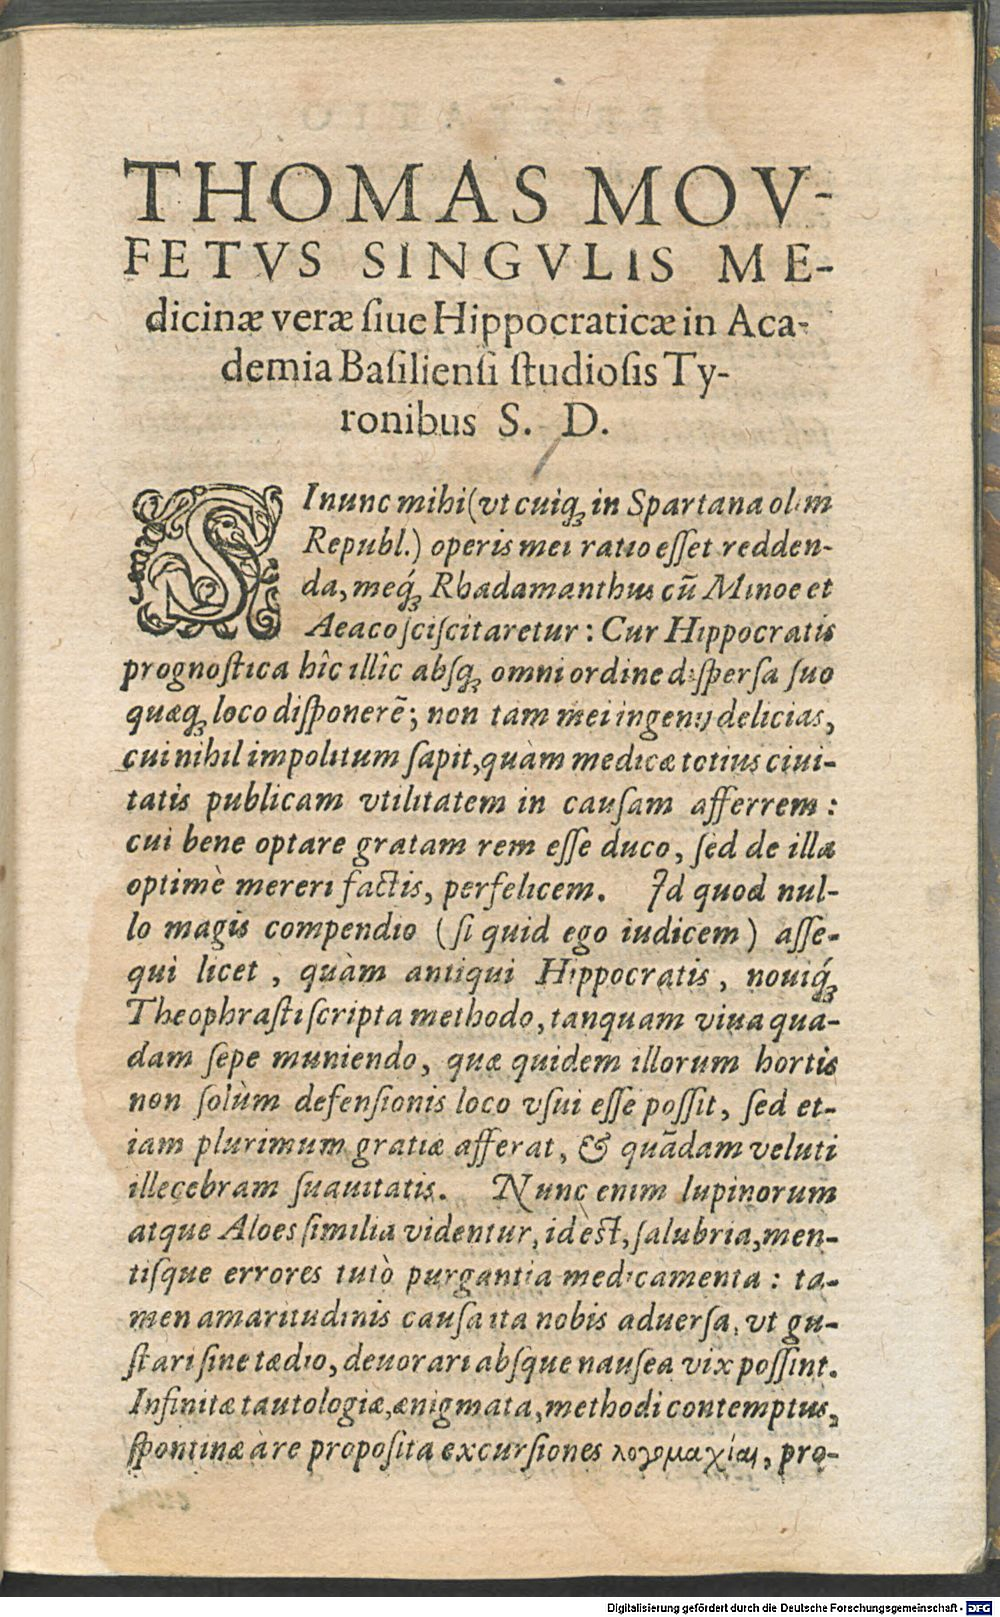 THOMAS MOV-
FETVS SINGVLIS ME-
dicinæ veræ ſiue Hippocraticæ in Aca-
demia Baſilienſi ſtudioſis Ty-
ronibus S. D.
SI nunc mihi (vt cuiq; in Spartana olim
Republ.) operis mei ratio eſſet redden-
da, meq́; Rhadamanthus cũ Minoe et
Aeaco ſciſcitaretur: Cur Hippocratis
prognoſtica hîc illîc abſq; omni ordine diſperſa ſuo
quæq; loco diſponerẽ; non tam mei ingenij delicias,
cui nihil impolitum ſapit, quàm medicæ totius ciui-
tatis publicam vtilitatem in cauſam afferrem:
cui bene optare gratam rem eſſe duco, ſed de illa
optimè mereri factis, perfelicem. Id quod nul-
lo magis compendio (ſi quid ego iudicem) aſſe-
qui licet, quàm antiqui Hippocratis, nouiq́;
Theophraſti ſcripta methodo, tanquam viua qua-
dam ſepe muniendo, quæ quidem illorum hortis
non ſolùm defenſionis loco vſui eſſe poſſit, ſed et-
iam plurimum gratiæ afferat, & quãdam veluti
illecebram ſuauitatis. Nunc enim lupinorum
atque Aloes ſimilia videntur, id èſt, ſalubria, men-
tiſque errores tutò purgantia medicamenta: ta-
men amaritudinis cauſa ita nobis aduerſa, vt gu-
ſtari ſine tædio, deuorari abſque nauſea vix poſſint.
Infinitæ tautologiæ, ænigmata, methodi contemptus,
ſpontinæ à re propoſita excurſiones λογομαχίαι, pro-
Digitalisierung gefördert durch die Deutsche Forschungsgemeinschaft - DFG